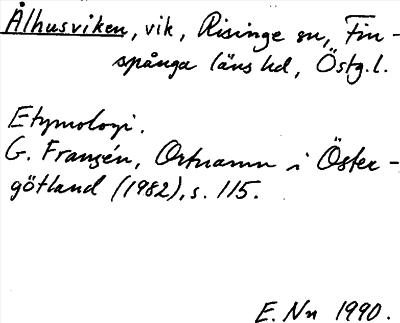 Ålhusviken, vik, Risinge sn, Fin-
spånga läns hd, Östg.l.
Etymologi.
G. Franzén, Ortnamn i Öster-
götland (1982), s. 115.
E. Nn 1990.